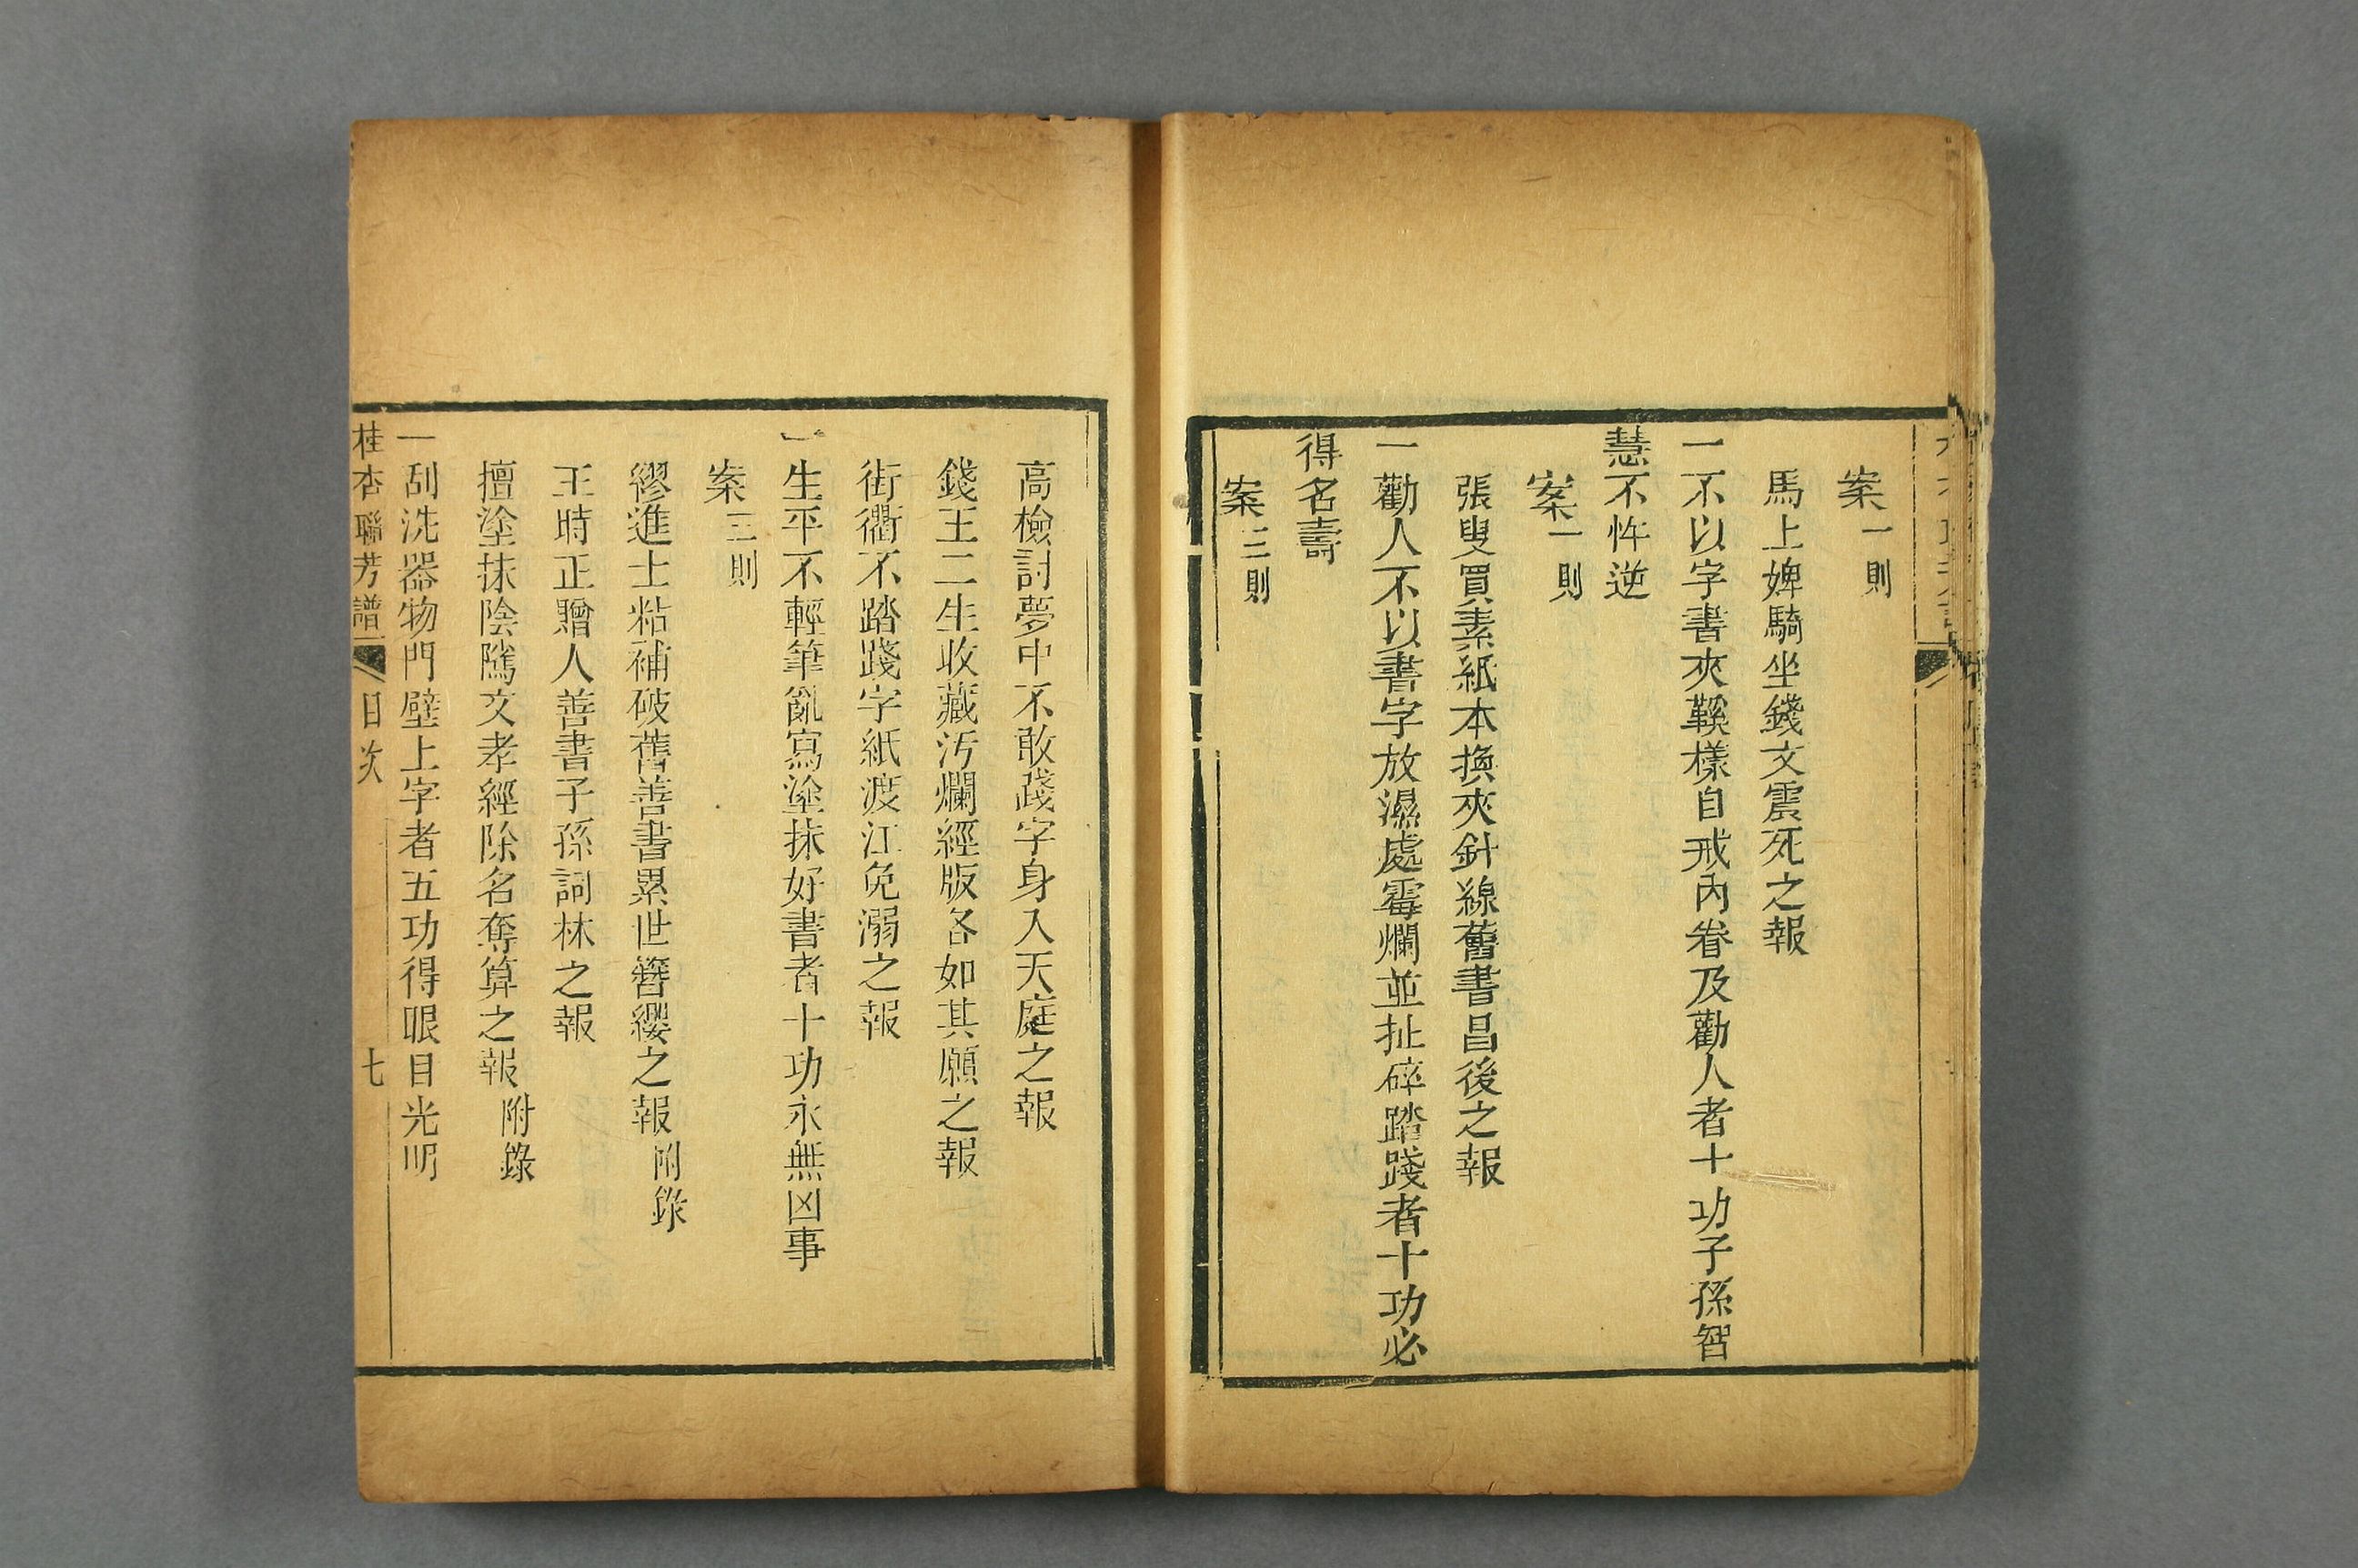 案一則
馬上婢騎坐錢文震死之報
一不以字書夾鞵樣自戒內眷及勸人者十功子孫智
慧不忤逆
案一則
張叟買素紙本換夾針線舊書昌後之報
一勸人不以書字放濕處霉爛並扯碎踏踐者十功必
得名壽
案三則
高檢討夢中不敢踐字身入天庭之報
錢王二生收藏汚爛經版各如其願之報
街衢不踏踐字紙渡江免溺之報
一生平不輕筆亂寫塗抹好書者十功永無凶事
案三則
繆進士粘補破舊善書累世簪纓之報附錄
王時正贈人善書子孫詞林之報
擅塗抹陰隲文孝經除名奪算之報附錄
一刮洗器物門壁上字者五功得眼目光明
桂杏聯芳譜 目次 七